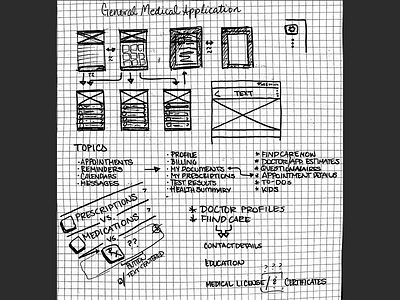 General Medical Application
TEXT
TOPICS
• APPOINTMENTS
• REMINDERS
• CALENDARS
• MESSAGES
• PROFILE
• BILLING
• MY DOCUMENTS
• MY PRESCRIPTIONS
• TEST RESULTS
• HEALTH SUMMARY
* FIND CARE NOW
* DOCTOR/APP. ESTIMATES
* QUESTIONAIRES
* APPOINTMENT DETAILS
* TO-DOS
* VIDS
PRESCRIPTIONS ?
VS.
MEDICATIONS ?
VS.
Rx ??
BUTTON
W/ TEXT CENTERED
* DOCTOR PROFILES
↓ FIIND CARE
CONTACT DETAILS
EDUCATION
? ? ?
MEDICAL LICENSE / & CERTIFICATES